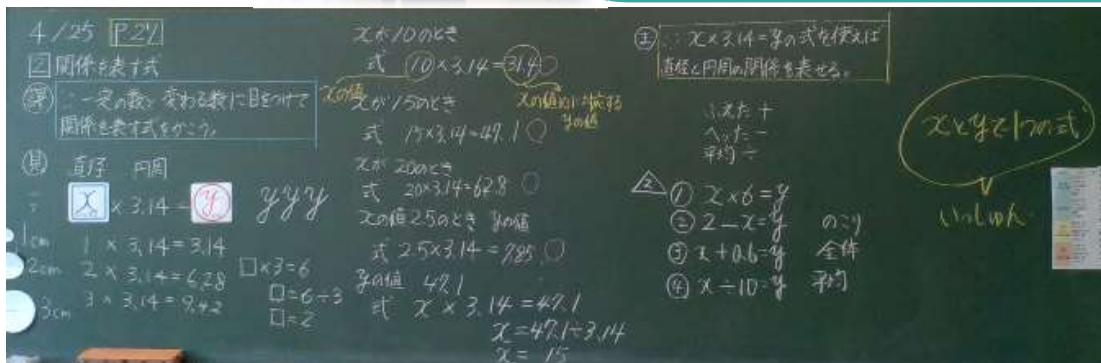 4/25 P.27
2 関係を表す式
課 ∴一定の数と変わる数に目をつけて
関係を表す式をかこう。
見 直径 円周
x × 3.14 = y y y y
1cm
2cm
3cm
1 × 3.14 = 3.14
2 × 3.14 = 6.28
3 × 3.14 = 9.42
□×3=6
□=6÷3
□=2
xが10のとき
式 10×3.14=31.4
xの値
xの値10に対応する
yの値
xが15のとき
式 15×3.14=47.1
xが20のとき
式 20×3.14=62.8
xの値25のとき yの値
式 25×3.14=78.5
yの値 47.1
式 x×3.14=47.1
x=47.1÷3.14
x=15
∴x×3.14=yの式を使えば
直径と円周の関係を表せる。
ふえた +
へった −
平均 ÷
2
① x×6=y
② 2−x=y のこり
③ x+0.6=y 全体
④ x÷10=y 平均
xとyで1つの式
いっしゅん